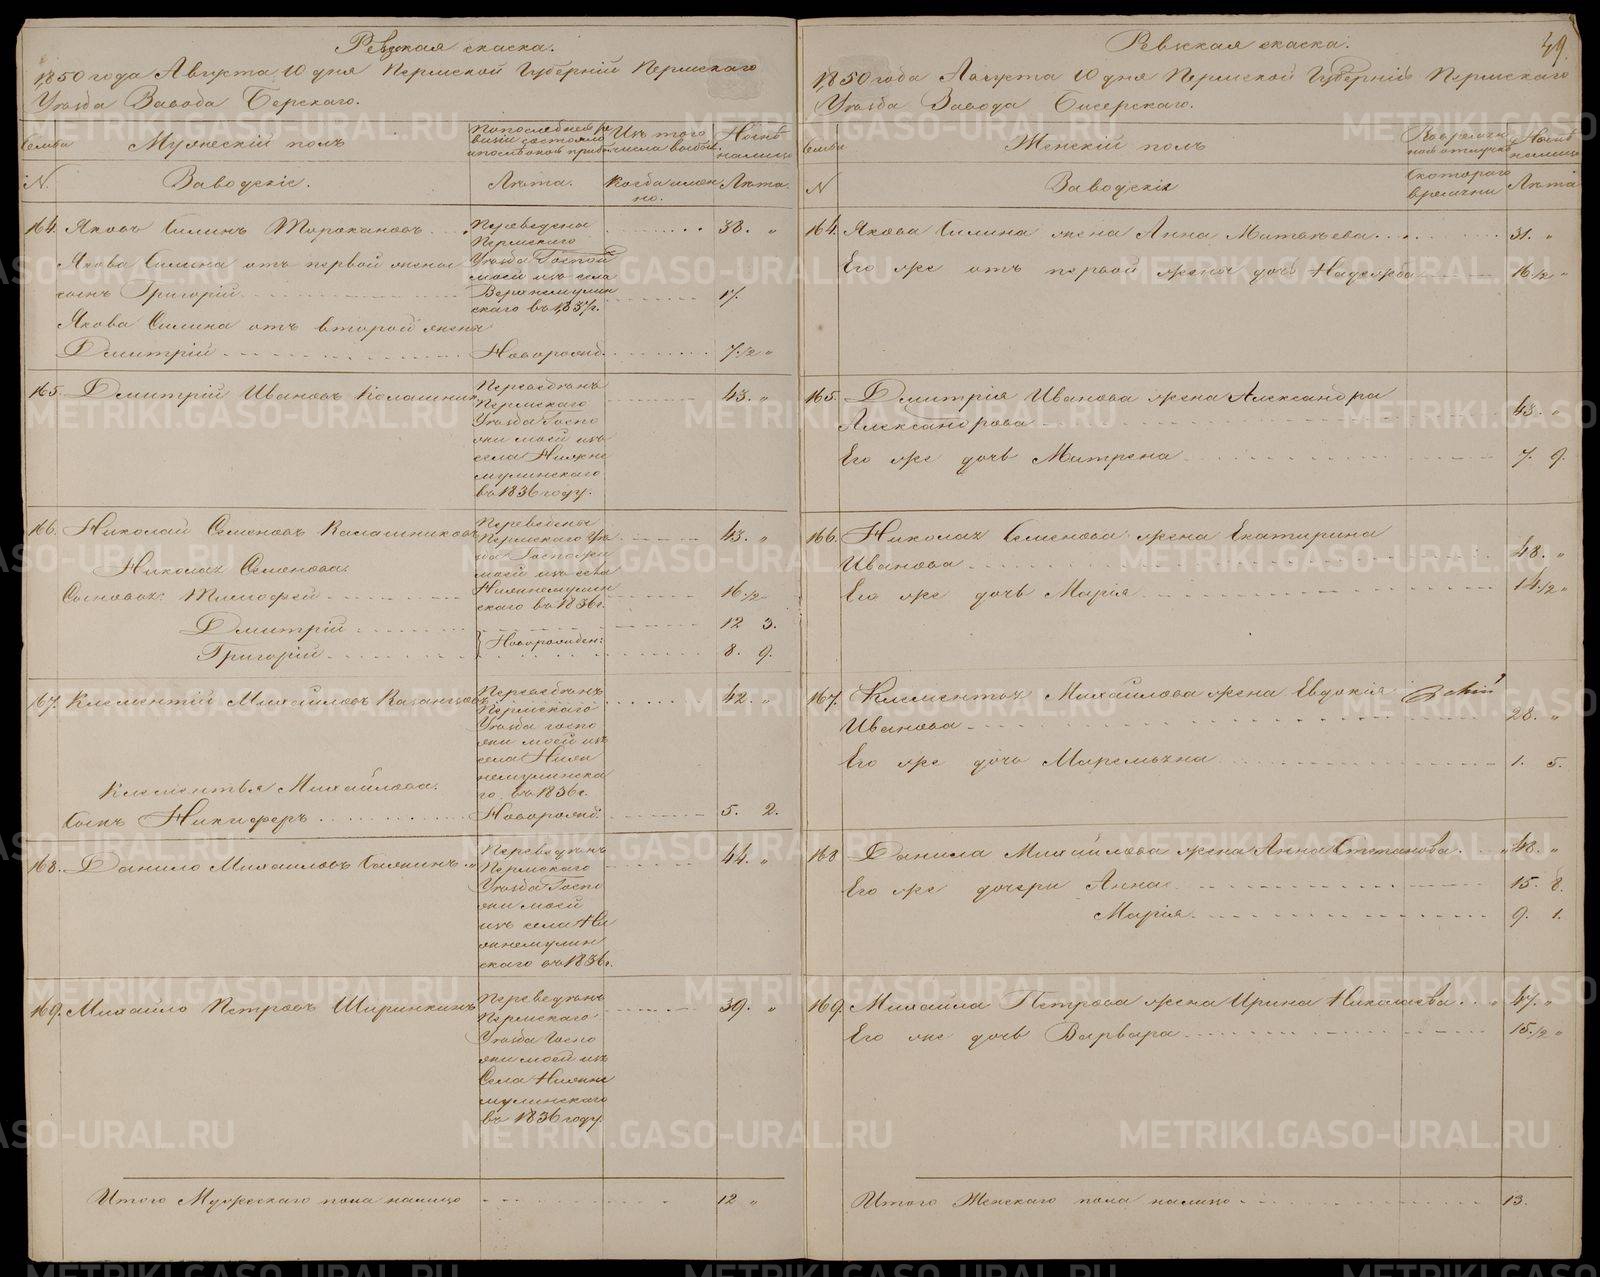 Ревзская скаска.
1850 года Августа 10 дня Пермской Губерніи Пермскаго
Уѣзда Завода Бисерскаго.
Семьи
Мужескій полъ
По последней ре
визіи состояло
и после оной прибы
Изъ того
числа выбыло
Нынѣ
на лицо
N.
Заводскіе.
Лѣта.
Когда имен
но.
Лѣта.
164. Яковъ Силинъ Тороканов
Переведены
Пермскаго
Уѣзда Госпож
моей изъ села
Верхнемулин
скаго въ 1837г.
38. „
Якова Силина отъ первой жены
сынъ Григорій
17.
Якова Силина отъ второй жены
Дмитрій
Новорожд.
7 1/2 „
165. Дмитрій Ивановъ Колашник
Переведенъ
Пермскаго
Уѣзда Госпо
жи моей изъ
села Нижне
мулинскаго
въ 1836 году.
43. „
166. Николай Семеновъ Калашниковъ
Переведены
Пермскаго Уѣз
да Госпожи
моей изъ села
Нижнемулин
скаго въ 1836г.
43. „
Николая Семенова.
Сыновья: Тимофей
16 1/2 „
Дмитрій
12 3.
Григорій
Новорожден:
8. 9.
167. Клементій Михайловъ Казанцовъ
Переведенъ
Пермскаго
Уѣзда госпо
жи моей изъ
села Ниж
немулинска
го въ 1836г.
42. „
Клементья Михайлова.
Сынъ Никифоръ
Новорожд.
5. 2.
168. Данило Михаиловъ
Переведенъ
Пермскаго
Уѣзда Госпо
жи моей
изъ села Ни
жнемулин
скаго въ 1836г.
44. „
169. Михайло Петровъ Ширинкинъ
Переведенъ
Пермскаго
Уѣзда Госпо
жи моей изъ
Села Нижне
мулинскаго
въ 1836 году.
39. „
Итого Мужескаго пола на лицо
12 „
49.
Ревзская скаска.
1850 года Августа 10 дня Пермской Губерніи Пермскаго
Уѣзда Завода Бисерскаго.
Семьи
Женскій полъ
Во времен
ной отлучкѣ
Нынѣ
на лицо
N
Заводскія
С котораго
времени
Лѣта
164. Якова Силина жена Анна Матвѣева
31. „
Его же отъ первой жены дочь Надежда
16 1/2 „
165. Дмитрія Иванова жена Александра
Александрова
43. „
Его же дочь Матрена
7. 9.
166. Николая Семенова жена Екатирина
Иванова
48. „
Его же дочь Марія
14 1/2 „
167. Клементья Михайлова жена Евдокія
Иванова
28. „
Его же дочь Маремьяна
1. 5.
168 Данила Михайлова жена Анна Степанова
48. „
Его же дочери Анна
15. 8.
Марія
9. 1.
169. Михайла Петрова жена Ирина Николаева
47. „
Его же дочь Варвара
15 1/2 „
Итого Женскаго пола на лицо
13.
METRIKI.GASO-URAL.RU